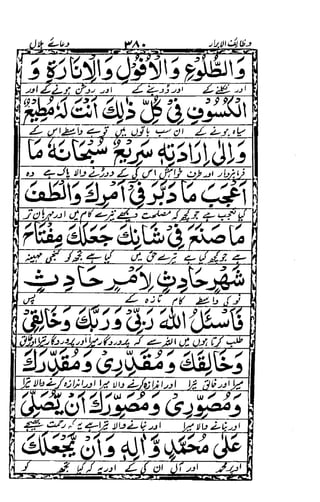 وظائف الابرار ۳۸۰ دعائے ہلال
وَالطُّلُوْعِ وَالْاُفُوْلِ وَالْاِنَارَةِ وَ
اور نکلنے کے اور ڈوبنے کے اور روشن ہونے کے اور
الْكُسُوْفِ فِيْ كُلِّ ذٰلِكَ اَنْتَ لَهٗ مُطِيْعٌ
سیاہ ہونے کے ان سب باتوں میں تو ہے واسطے اس کے
وَاِلٰى اِرَادَتِهٖ سَرِيْعٌ سُبْحَانَهٗ مَا
فرمانبردار اور طرف خواہش اس کی کے دوڑنے والا پاک ہے وہ
اَعْجَبَ مَا دَبَّرَ فِيْ اَمْرِكَ وَاَلْطَفَ
کیا عجب ہے جو کچھ کہ مصلحت دیکھی تیرے کام میں اور مہربان تر
مَا صَنَعَ فِيْ شَانِكَ جَعَلَكَ مِفْتَاحَ
ہے جو کچھ کیا ہے تیرے حق میں کیا ہے تجھ کو کنجی مہینہ
شَهْرٍ حَادِثٍ لِاَمْرٍ حَادِثٍ
نو کی واسطے کام تازہ کے پس
فَاَسْئَلُ اللّٰهَ رَبِّيْ وَرَبَّكَ وَخَالِقِيْ
طلب کرتا ہوں میں اللہ سے کہ پروردگار میرا اور پروردگار تیرا اور خالق
وَخَالِقَكَ وَمُقَدِّرِيْ وَمُقَدِّرَكَ
میرا اور خالق تیرا اور اندازہ کرنے والا میرا اور اندازہ کرنے والا تیرا
وَمُصَوِّرِيْ وَمُصَوِّرَكَ اَنْ يُّصَلِّيَ
اور بنانے والا میرا اور بنانے والا تیرا ہے یہ کہ رحمت بھیجے
عَلٰى مُحَمَّدٍ وَّاٰلِهٖ وَاَنْ يَّجْعَلَكَ
اوپر محمد اور آل ان کی کے اور یہ کہ کیا تجھ کو